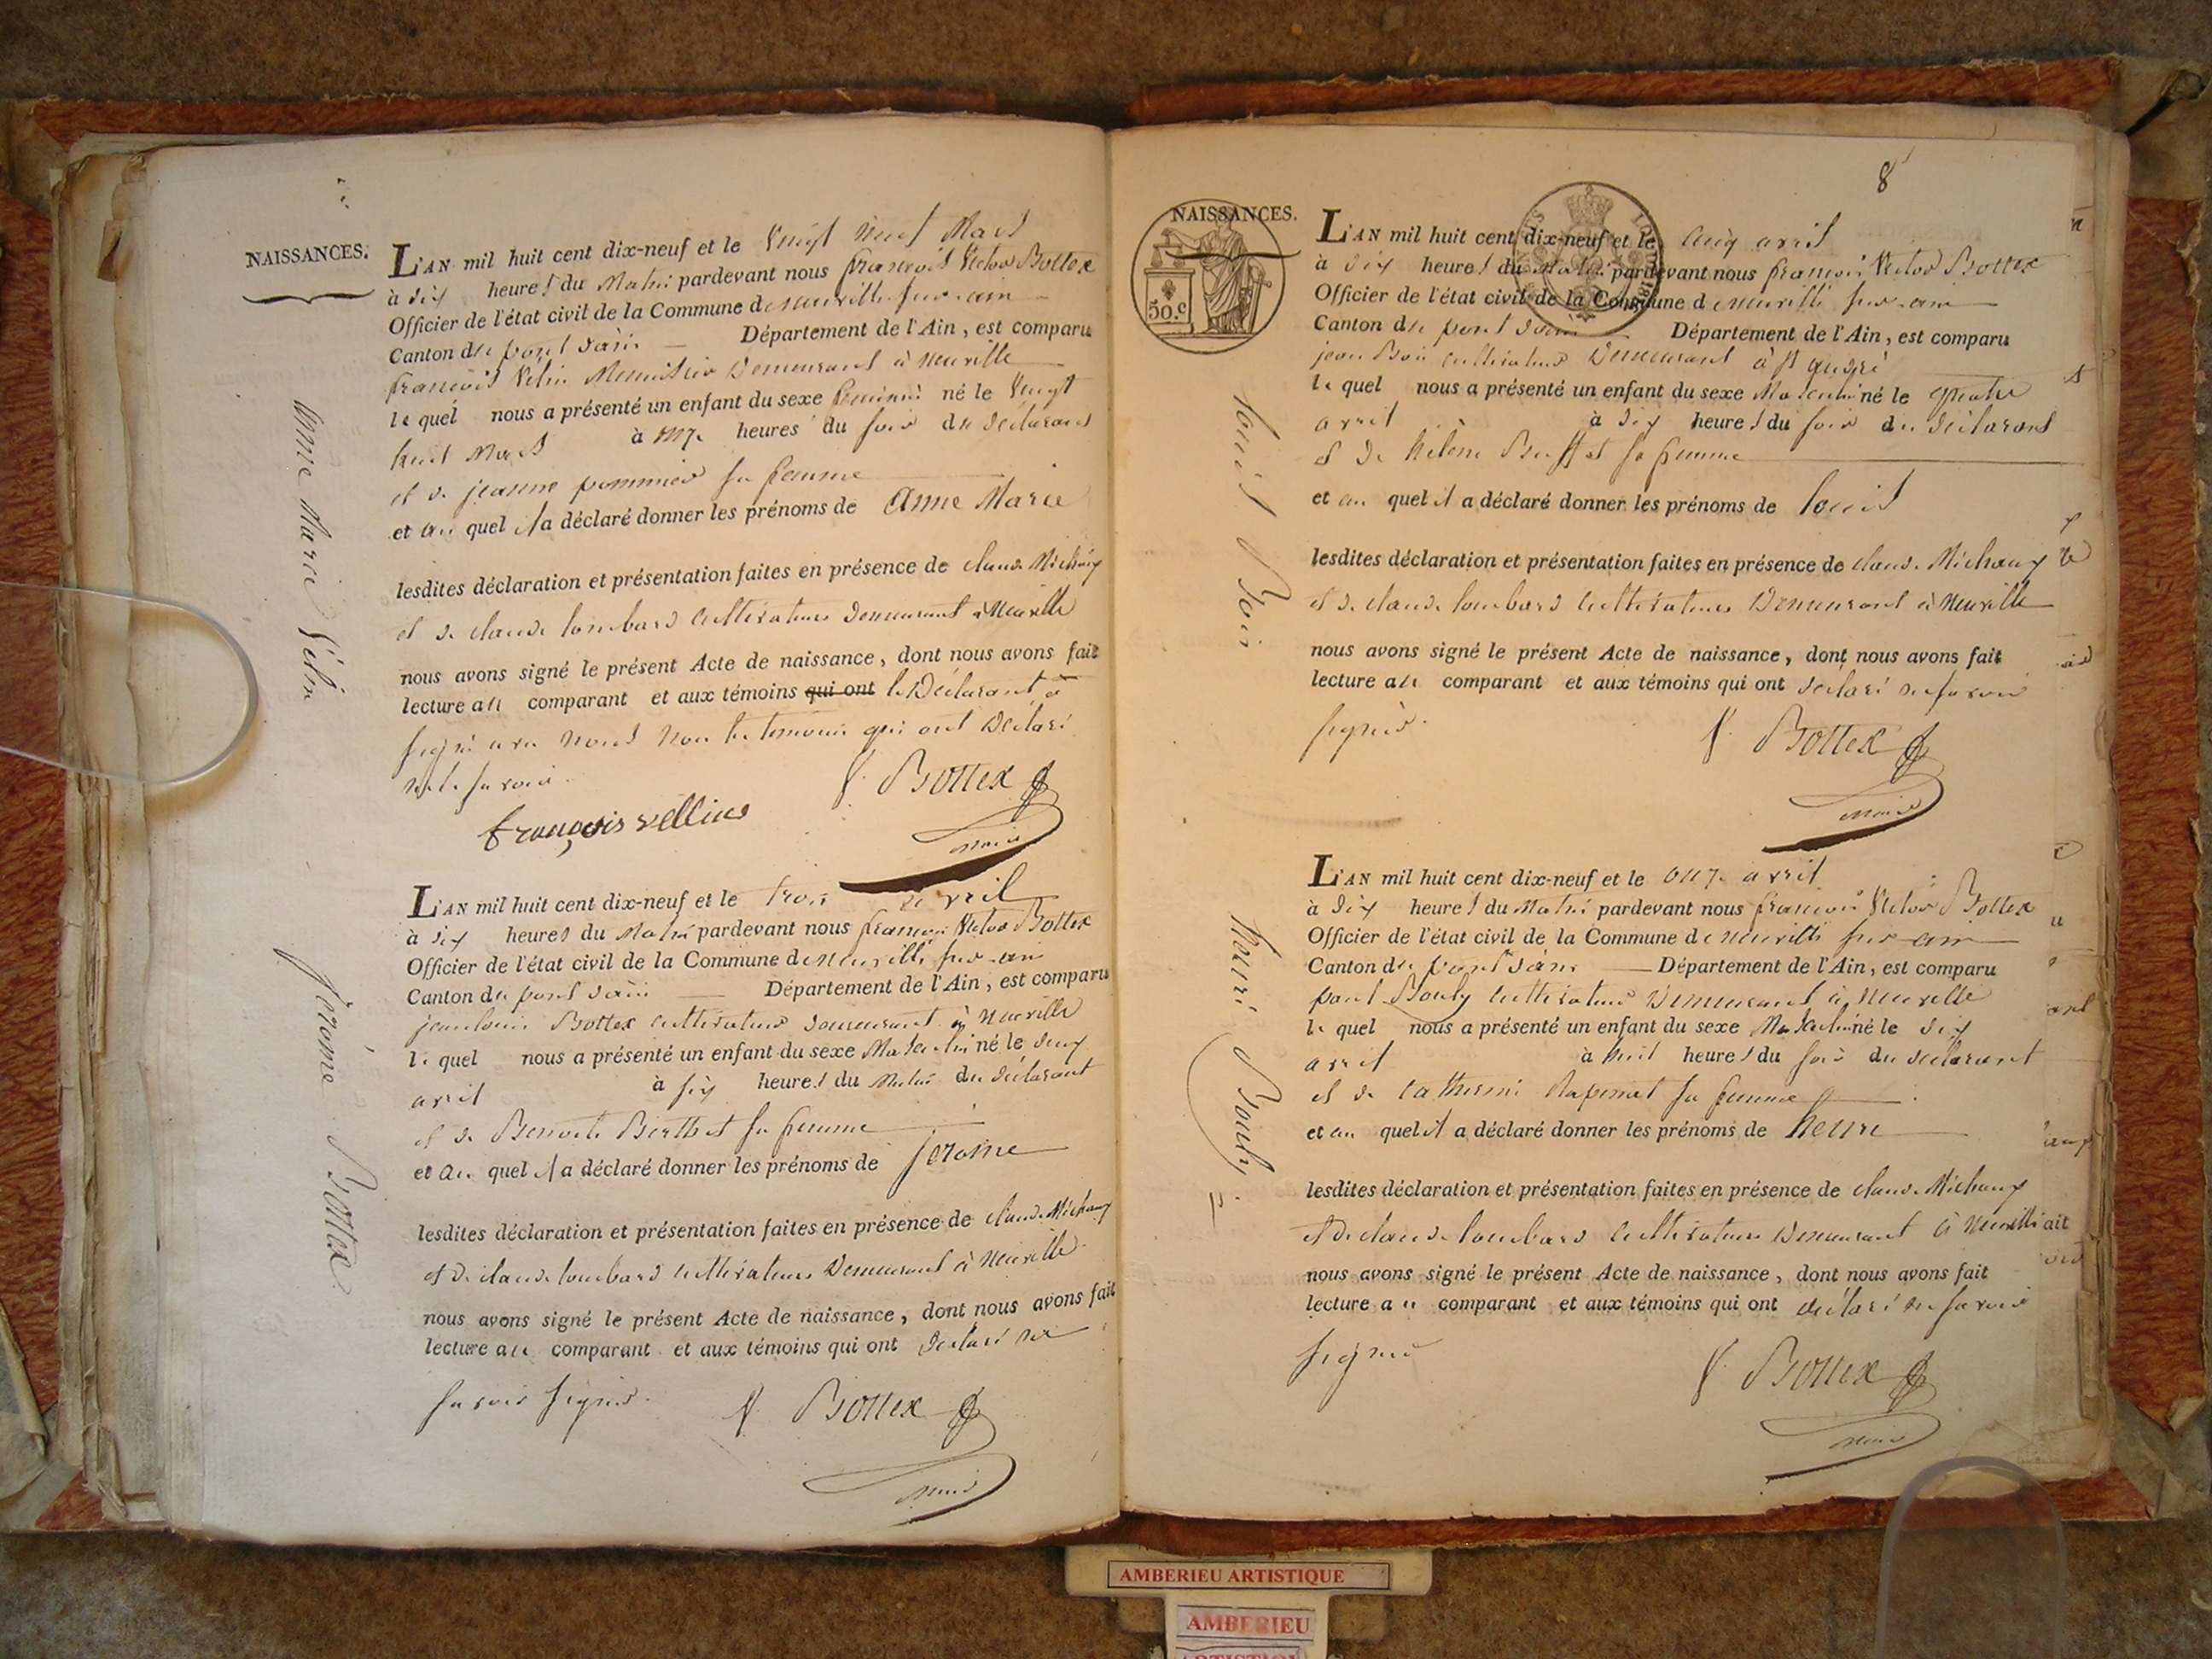 NAISSANCES.
L'AN mil huit cent dix-neuf et le Vingt neuf Mars
à dix heures du Matin pardevant nous françois Victor Bottex
Officier de l'état civil de la Commune de neuville sur ain
Canton du pont dain Département de l'Ain, est comparu
françois Velin Menuisier Demeurant à neuville
lequel nous a présenté un enfant du sexe feminin né le Vingt
huit Mars à onze heures du soir du déclarant
et de jeanne pommier sa femme
et au quel il a déclaré donner les prénoms de Anne Marie
lesdites déclaration et présentation faites en présence de claude Michaux
et de claude lombard cultivateurs demeurant à Neuville
nous avons signé le présent Acte de naissance, dont nous avons fait
lecture au comparant et aux témoins qui ont le Déclarant a
signé avec nous non les temoins qui ont Déclaré
ne le savoir.
françois vellins
V. Bottex
maire
Anne Marie Velin
L'AN mil huit cent dix-neuf et le trois avril
à six heures du Matin pardevant nous françois Victor Bottex
Officier de l'état civil de la Commune de neuville sur ain
Canton du pont dain Département de l'Ain, est comparu
jean louis Bottex cultivateur demeurant à Neuville
lequel nous a présenté un enfant du sexe Masculin né le deux
avril à six heures du Matin du déclarant
et de Benoite Berthet sa femme
et au quel il a déclaré donner les prénoms de jerome
lesdites déclaration et présentation faites en présence de claude Michaux
et de claude lombard cultivateurs Demeurant à Neuville
nous avons signé le présent Acte de naissance, dont nous avons fait
lecture au comparant et aux témoins qui ont declaré ne
savoir signer.
V. Bottex
maire
Jérôme Bottex
8
NAISSANCES.
50.c
L'AN mil huit cent dix-neuf et le cinq avril
à dix heures du Matin pardevant nous françois Victor Bottex
Officier de l'état civil de la Commune de neuville sur ain
Canton du pont dain Département de l'Ain, est comparu
jean Boin cultivateur Demeurant à St andré
lequel nous a présenté un enfant du sexe Masculin né le quatre
avril à dix heures du soir du déclarant
et de hélène Buffet sa femme
et au quel il a déclaré donner les prénoms de louis
lesdites déclaration et présentation faites en présence de claude Michaux
et de claude lombard cultivateurs Demeurant à Neuville
nous avons signé le présent Acte de naissance, dont nous avons fait
lecture au comparant et aux témoins qui ont declaré ne savoir
signer.
V. Bottex
maire
louis Boin
L'AN mil huit cent dix-neuf et le onze avril
à dix heures du Matin pardevant nous françois Victor Bottex
Officier de l'état civil de la Commune de neuville sur ain
Canton du pont dain Département de l'Ain, est comparu
paul Bouly cultivateur Demeurant à Neuville
lequel nous a présenté un enfant du sexe Masculin né le dix
avril à huit heures du soir du déclarant
et de Catherine Rapinat sa femme
et au quel il a déclaré donner les prénoms de henri
lesdites déclaration et présentation faites en présence de claude Michaux
et de claude lombard cultivateurs Demeurant à Neuville
nous avons signé le présent Acte de naissance, dont nous avons fait
lecture au comparant et aux témoins qui ont déclaré ne savoir
signer
V. Bottex
maire
henri Bouly
AMBERIEU ARTISTIQUE
AMBERIEU
ARTISTIQUE